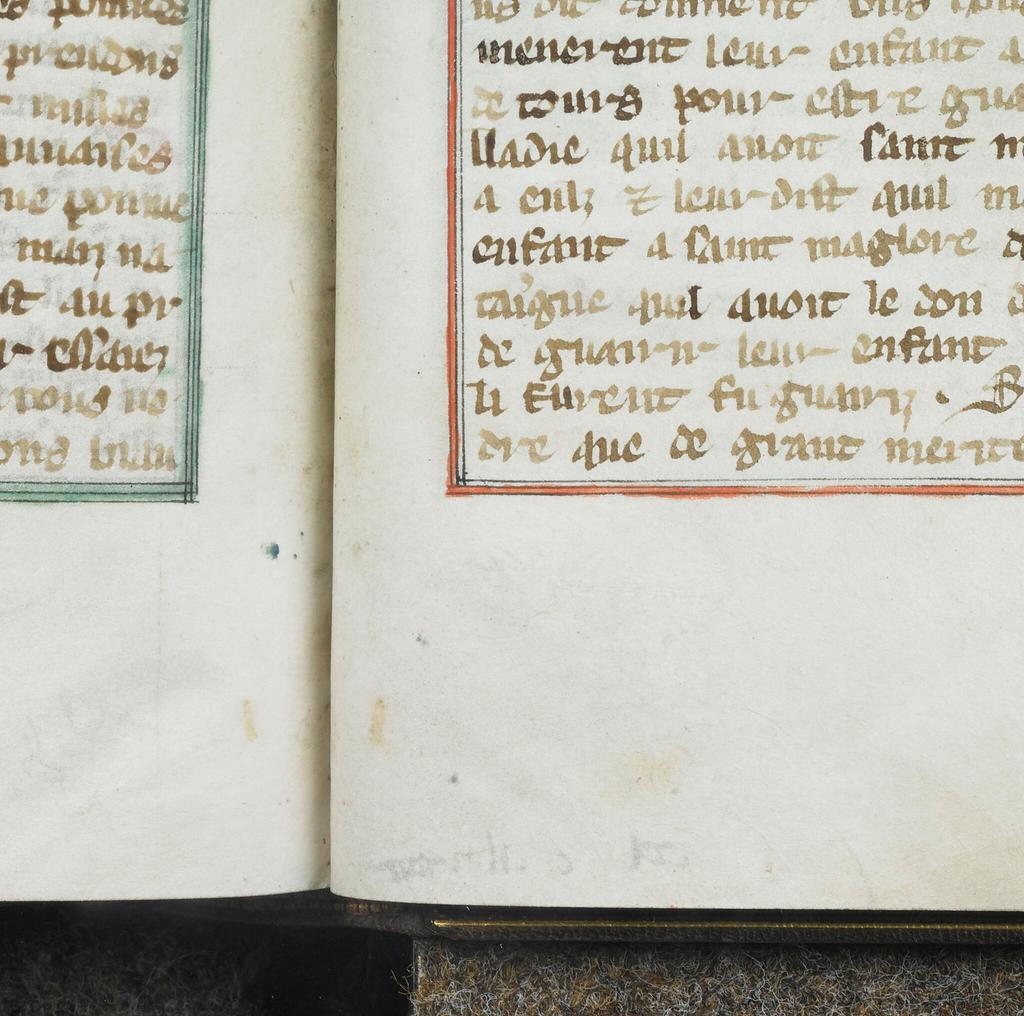 prendons
nulles
mauvaises
que pomme
man na
st au pr
r essaiez
vous ne
ons bien
us dit comment
menerent leur enfant a
de tours pour estre gua
lladie quil avoit saint m
a eulz ⁊ leur dist quil m
enfant a saint magloire d
taigne quil avoit le don d
de guarir leur enfant
li furent fu guariz .
dre que de grant merite